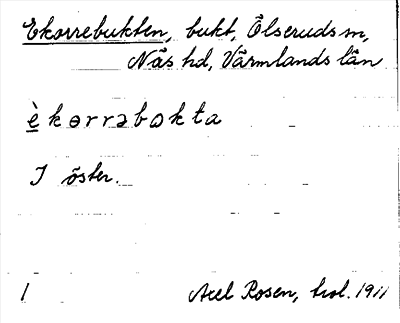 Ekorrebukten, bukt, Ölseruds m,
Näs hd, Värmlands län
è̲kɵrrəbɷkta
I öster.
1 Axel Rosen, trol. 1911